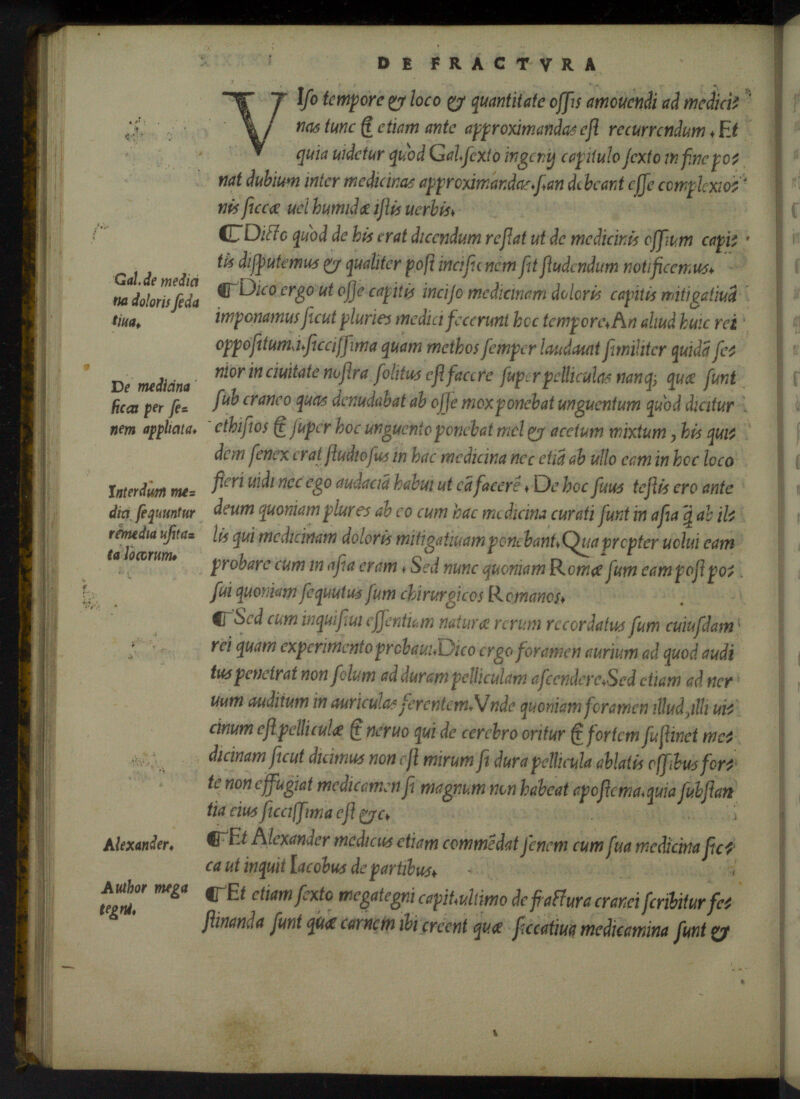 DE FRACTVRA
VIſo tempore & loco & quantitate oſſis amouendi ad medici⸗
nas tunc & etiam ante approximandas eſt recurrendum. Et
quia uidetur quod Gal.ſexto ingenij capitulo ſexto in fine po⸗
nat dubium inter medicinas approximandas.ſ.an debeant eſſe complexio⸗
nis ſiccæ uel humidæ iſtis uerbis.
¶ Dicto quod de his erat dicendum reſtat ut de medicinis oſſium capi⸗
tis diſputemus & qualiter poſt inciſionem ſit ſtudendum notificemus.
Gal. de medici
na doloris ſeda
tiua.
¶ Dico ergo ut oſſe capitis inciſo medicinam doloris capitis mitigatiuã
imponamus ſicut pluries medici fecerunt hoc tempore. An aliud huic rei
oppoſitum.i.ſicciſſima quam methos ſemper laudauit ſimiliter quidã ſe⸗
De medicina
ſicca per ſe⸗
nem applicata.
nior in ciuitate noſtra ſolitus eſt facere ſuper pelliculas nanq; quæ ſunt
ſub craneo quas denudabat ab oſſe mox ponebat unguentum quod dicitur
ethiſios & ſuper hoc unguento ponebat mel & acetum mixtum, his qui⸗
dem ſenex erat ſtudioſus in hac medicina nec etiã ab ullo eam in hoc loco
Interdum me⸗
dici ſequuntur
remedia uſita⸗
ta locorum.
fieri uidi nec ego audaciã habui ut eã facerē. De hoc ſuus teſtis ero ante
deum quoniam plures ab eo cum hac medicina curati ſunt in aſia q̃ ab il⸗
lis qui medicinam doloris mitigatiuam ponebant. Qua propter uolui eam
probare cum in aſia eram. Sed nunc quoniam Romæ ſum eam poſt po⸗
ſui quoniam ſequutus ſum chirurgicos Romanos.
¶ Sed cum inquiſiui eſſentiam naturæ rerum recordatus ſum cuiuſdam
rei quam experimento probaui. Dico ergo foramen aurium ad quod audi
tus penetrat non ſolum ad duram pelliculam aſcendere. Sed etiam ad ner
uum auditum in auriculas ferentem. Vnde quoniam foramen illud, illi ui⸗
cinum eſt pelliculæ & neruo qui de cerebro oritur & fortem ſuſtinet me⸗
dicinam ſicut dicimus non eſt mirum ſi dura pellicula ablatis oſſibus for⸗
te non effugiat medicamen ſi magnum non habeat apoſtema. quia ſubſtan
tia eius ſicciſſima eſt &c.
Alexander.
¶ Et Alexander medicus etiam commẽdat ſenem cum ſua medicina ſic⸗
ca ut inquit Iacobus de partibus.
Author mega
tegni.
¶ Et etiam ſexto megategni capit.ultimo de fractura cranei ſcribitur fe⸗
ſtinanda ſunt quæ carnem ibi creent quæ ſiccatiua medicamina ſunt &